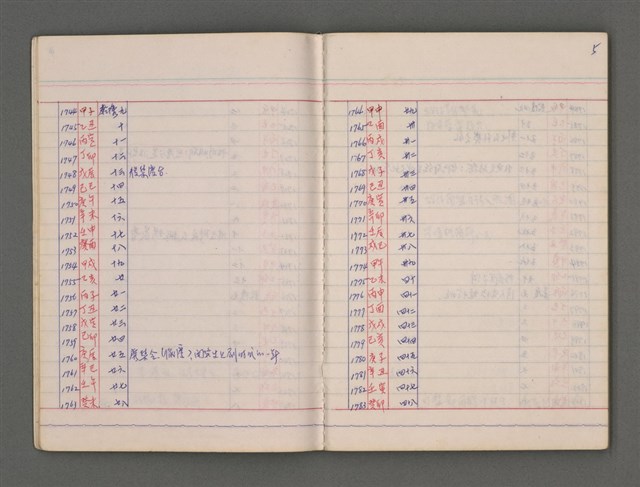 1744 甲子 乾隆九
1745 乙丑 十
1746 丙寅 十一
1747 丁卯 十二
1748 戊辰 十三
1749 己巳 十四
1750 庚午 十五
1751 辛未 十六
1752 壬申 十七
1753 癸酉 十八
1754 甲戌 十九
1755 乙亥 廿
1756 丙子 廿一
1757 丁丑 廿二
1758 戊寅 廿三
1759 己卯 廿四
1760 庚辰 廿五
1761 辛巳 廿六
1762 壬午 廿七
1763 癸未 廿八
5
1764 甲申 廿九
1765 乙酉 卅
1766 丙戌 卅一
1767 丁亥 卅二
1768 戊子 卅三
1769 己丑 卅四
1770 庚寅 卅五
1771 辛卯 卅六
1772 壬辰 卅七
1773 癸巳 卅八
1774 甲午 卅九
1775 乙未 四十
1776 丙申 四一
1777 丁酉 四二
1778 戊戌 四三
1779 己亥 四四
1780 庚子 四五
1781 辛丑 四六
1782 壬寅 四七
1783 癸卯 四八